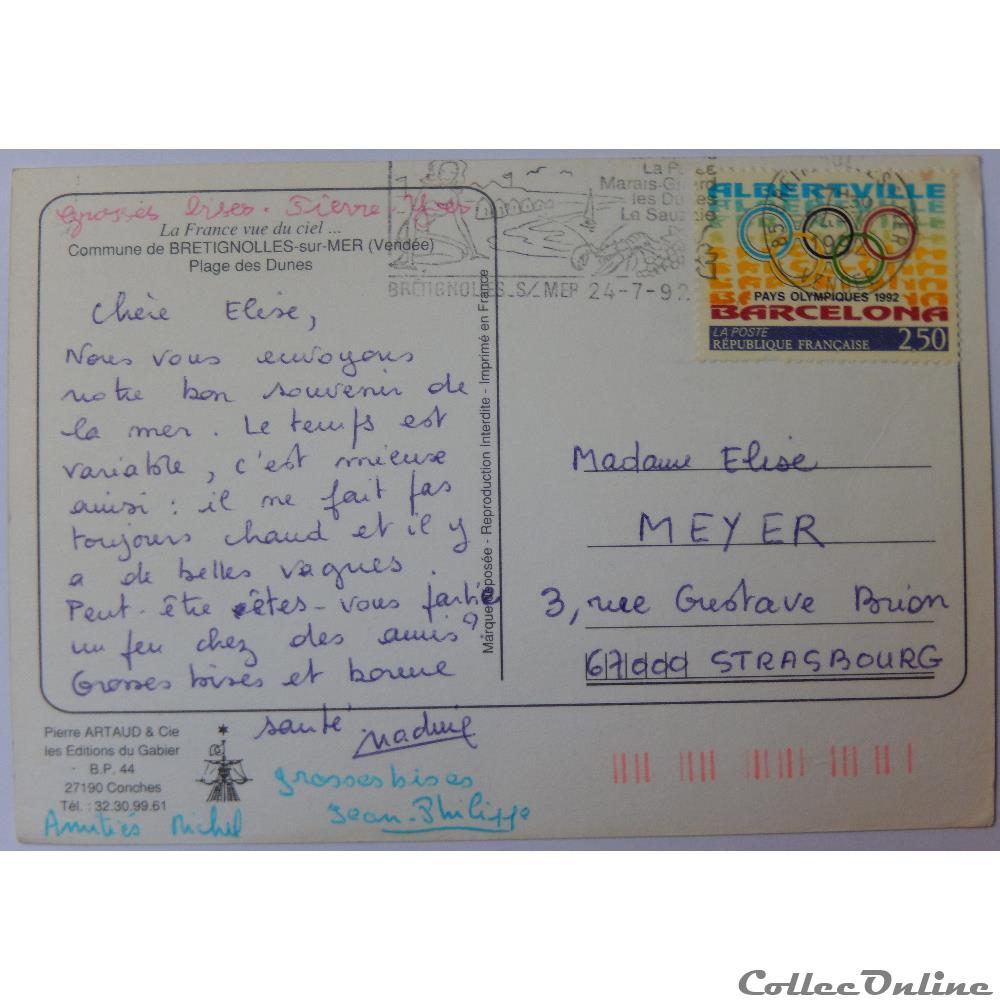 Grosses bises. Pierre-Yves
La France vue du ciel ...
Commune de BRETIGNOLLES-sur-MER (Vendée)
Plage des Dunes
Chère Elise,
Nous vous envoyons
notre bon souvenir de
la mer. Le temps est
variable, c'est mieux
ainsi : il ne fait pas
toujours chaud et il y
a de belles vagues.
Peut-être êtes-vous partie
un peu chez des amis ?
Grosses bises et bonne
santé
Nadine
grosses bises
Jean-Philippe
Amitiés Michel
Pierre ARTAUD & Cie
les Editions du Gabier
B.P. 44
27190 Conches
Tél. : 32.30.99.61
Marque déposée - Reproduction Interdite - Imprimé en France
Marais-Girard
les Dunes
La Sauzaie
BRETIGNOLLES_S/MER 24-7-92
1992
ALBERTVILLE
PAYS OLYMPIQUES 1992
BARCELONA
LA POSTE
RÉPUBLIQUE FRANÇAISE 2,50
Madame Elise
MEYER
3, rue Gustave Brion
67000 STRASBOURG
CollecOnline